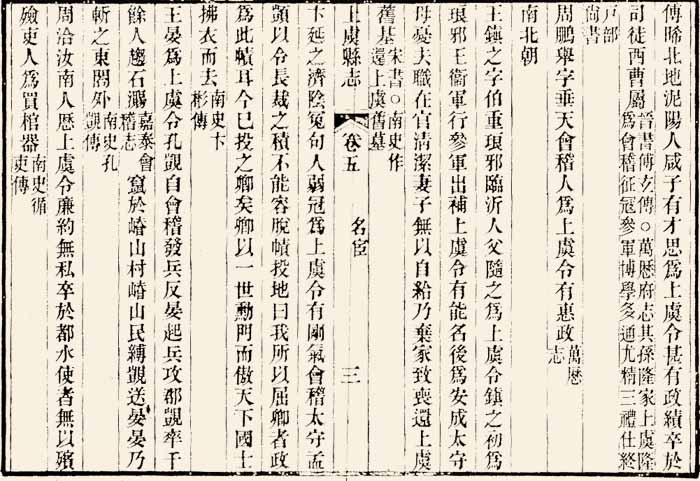 傅晞北地泥陽人咸子有才思爲上虞令甚有政績卒於
司徒西曹屬晉書傅玄傳○萬歷府志其孫隆家上虞隆
爲會稽征冦參軍博學多通尤精三禮仕終
戶部
尚書
周鵬舉字垂天會稽人爲上虞令有惠政萬歷
志
南北朝
王鎮之字伯重琅邪臨沂人父隨之爲上虞令鎮之初爲
琅邪王衞軍行參軍出補上虞令有能名後爲安成太守
母憂去職在官清潔妻子無以自給乃棄家致喪還上虞
舊基宋書○南史作
還上虞舊墓
上虞縣志 卷五 名臣 三
卞延之濟陰寃句人弱冠爲上虞令有剛氣會稽太守孟
顗以令長裁之積不能容脫幘投地曰我所以屈卿者政
爲此幘耳今已投之卿矣卿以一世勳門而傲天下國士
拂衣而去南史卞
彬傳
王晏爲上虞令孔覬自會稽發兵反晏起兵攻郡覬率千
餘人趨石瀃嘉泰會
稽志竄於嵴山村嵴山民縛覬送晏晏乃
斬之東閤外南史孔
覬傳
周洽汝南人歷上虞令廉約無私卒於都水使者無以殯
殮吏人爲買棺器南史循
吏傳